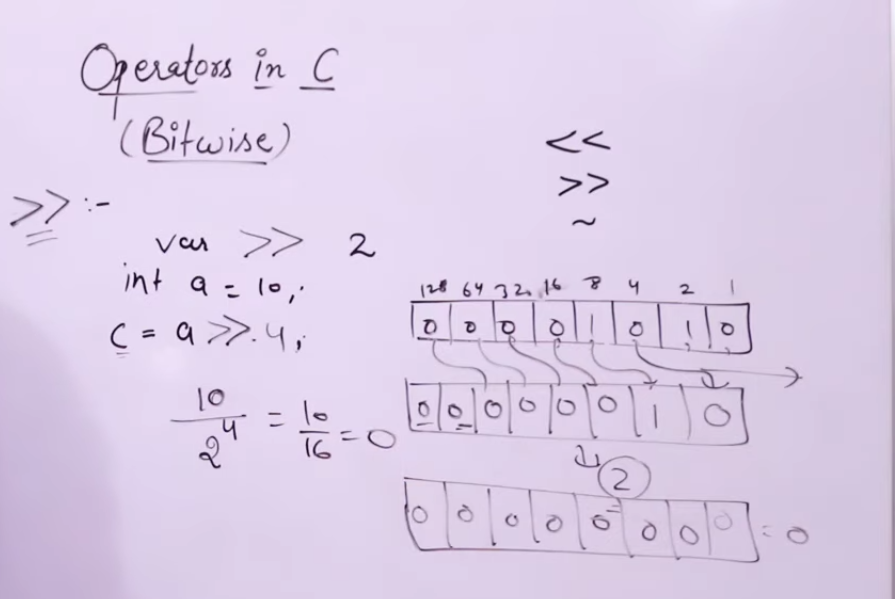 Operators in C
(Bitwise)
<<
>>
~
>> :-
var >> 2
int a = 10;
c = a >> 4;
10 / 2^4 = 10 / 16 = 0
128 64 32 16 8 4 2 1
0 0 0 0 1 0 1 0
0 0 0 0 0 0 1 0
2
0 0 0 0 0 0 0 0 = 0